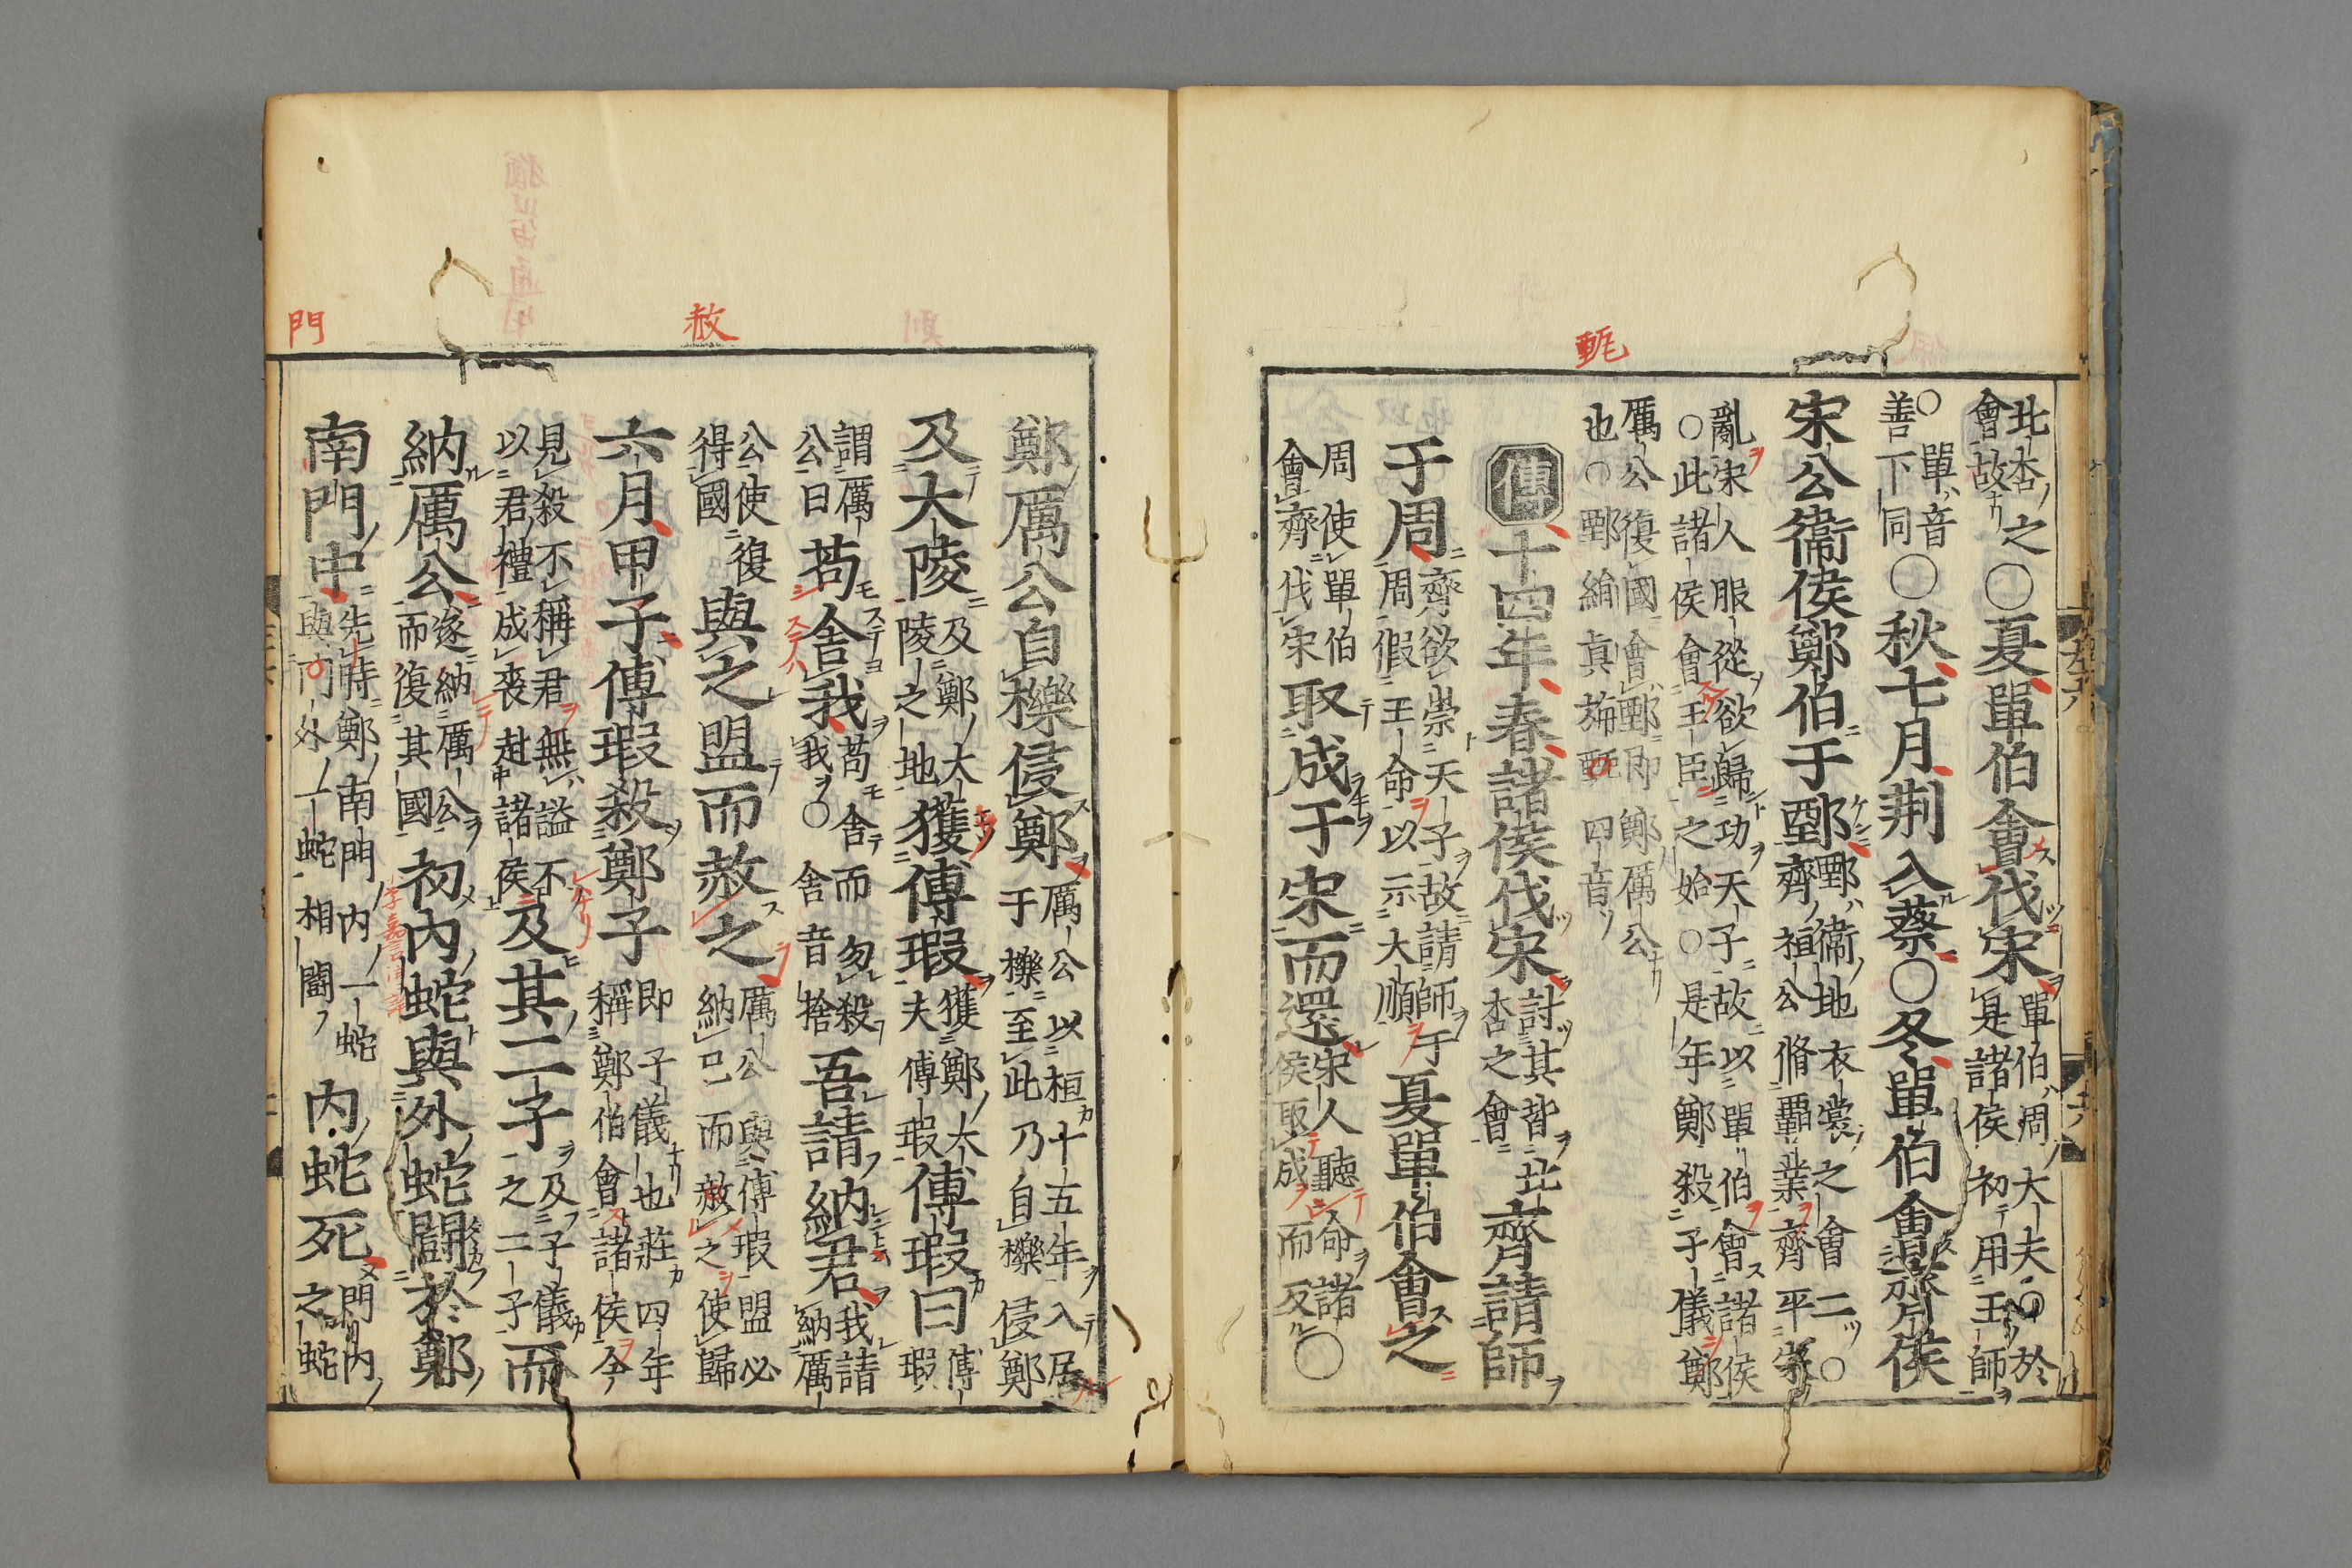 甄
北杏ノ之
會故ナリ
○夏單伯會伐宋
單伯ハ周ノ大夫○於
是諸侯初テ用王師
○單ハ音
善下同
○秋七月荆入蔡○冬單伯會齊侯
宋公衞侯鄭伯于鄄
鄄ハ衞ノ地衣裳ノ之會二ツ○
齊ノ祖公脩覇業齊平宋
亂宋人服從欲歸功天子故以單伯會諸侯
○此諸侯會王臣之始○是年鄭殺子儀鄭
厲公復國會鄄即鄭厲公ナリ
也○鄄絹眞旃甄四音
傳十四年春諸侯伐宋
討其背北
杏之會
齊請師
于周
齊欲崇天子故請師于
周假王命以示大順
夏單伯會之
周使單伯
會齊伐宋
取成于宋而還
宋人聽命諸
侯取成而反
○
門
赦
鄭厲公自櫟侵鄭
厲公以桓十五年入居
于櫟至此乃自櫟侵鄭
及大陵
及鄭ノ大
陵之地
獲傅瑕
獲鄭ノ大
夫傅瑕
傅瑕曰
傅
瑕
謂厲
公曰
苟舍我
苟舍而勿殺
我○舍音捨
吾請納君
我請
納厲
公使復
得國
與之盟而赦之
厲公與傅瑕盟必
納已而赦之使歸
六月甲子傅瑕殺鄭子
即子儀也莊四年
稱鄭伯會諸侯今
見殺不稱君無謚不
以君禮成喪赴諸侯
及其二子
及子儀
之二子
而
納厲公
遂納厲公
而復其國
初內蛇與外蛇鬭於鄭
南門中
先時鄭ノ南門ノ内ノ一蛇
與門外ノ一蛇相鬭フ
内蛇死
門内ノ
之蛇